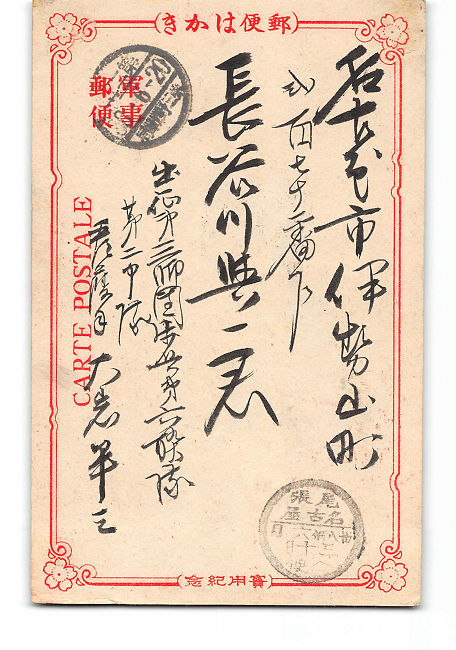 郵便はかき
軍事
郵便
CARTE POSTALE
名古屋市伊勢山町
弐百七十二番戸
長谷川與二君
出征第三師団歩兵第六聯隊
第二中隊
大岩半三
尾張
名古屋
實用紀念